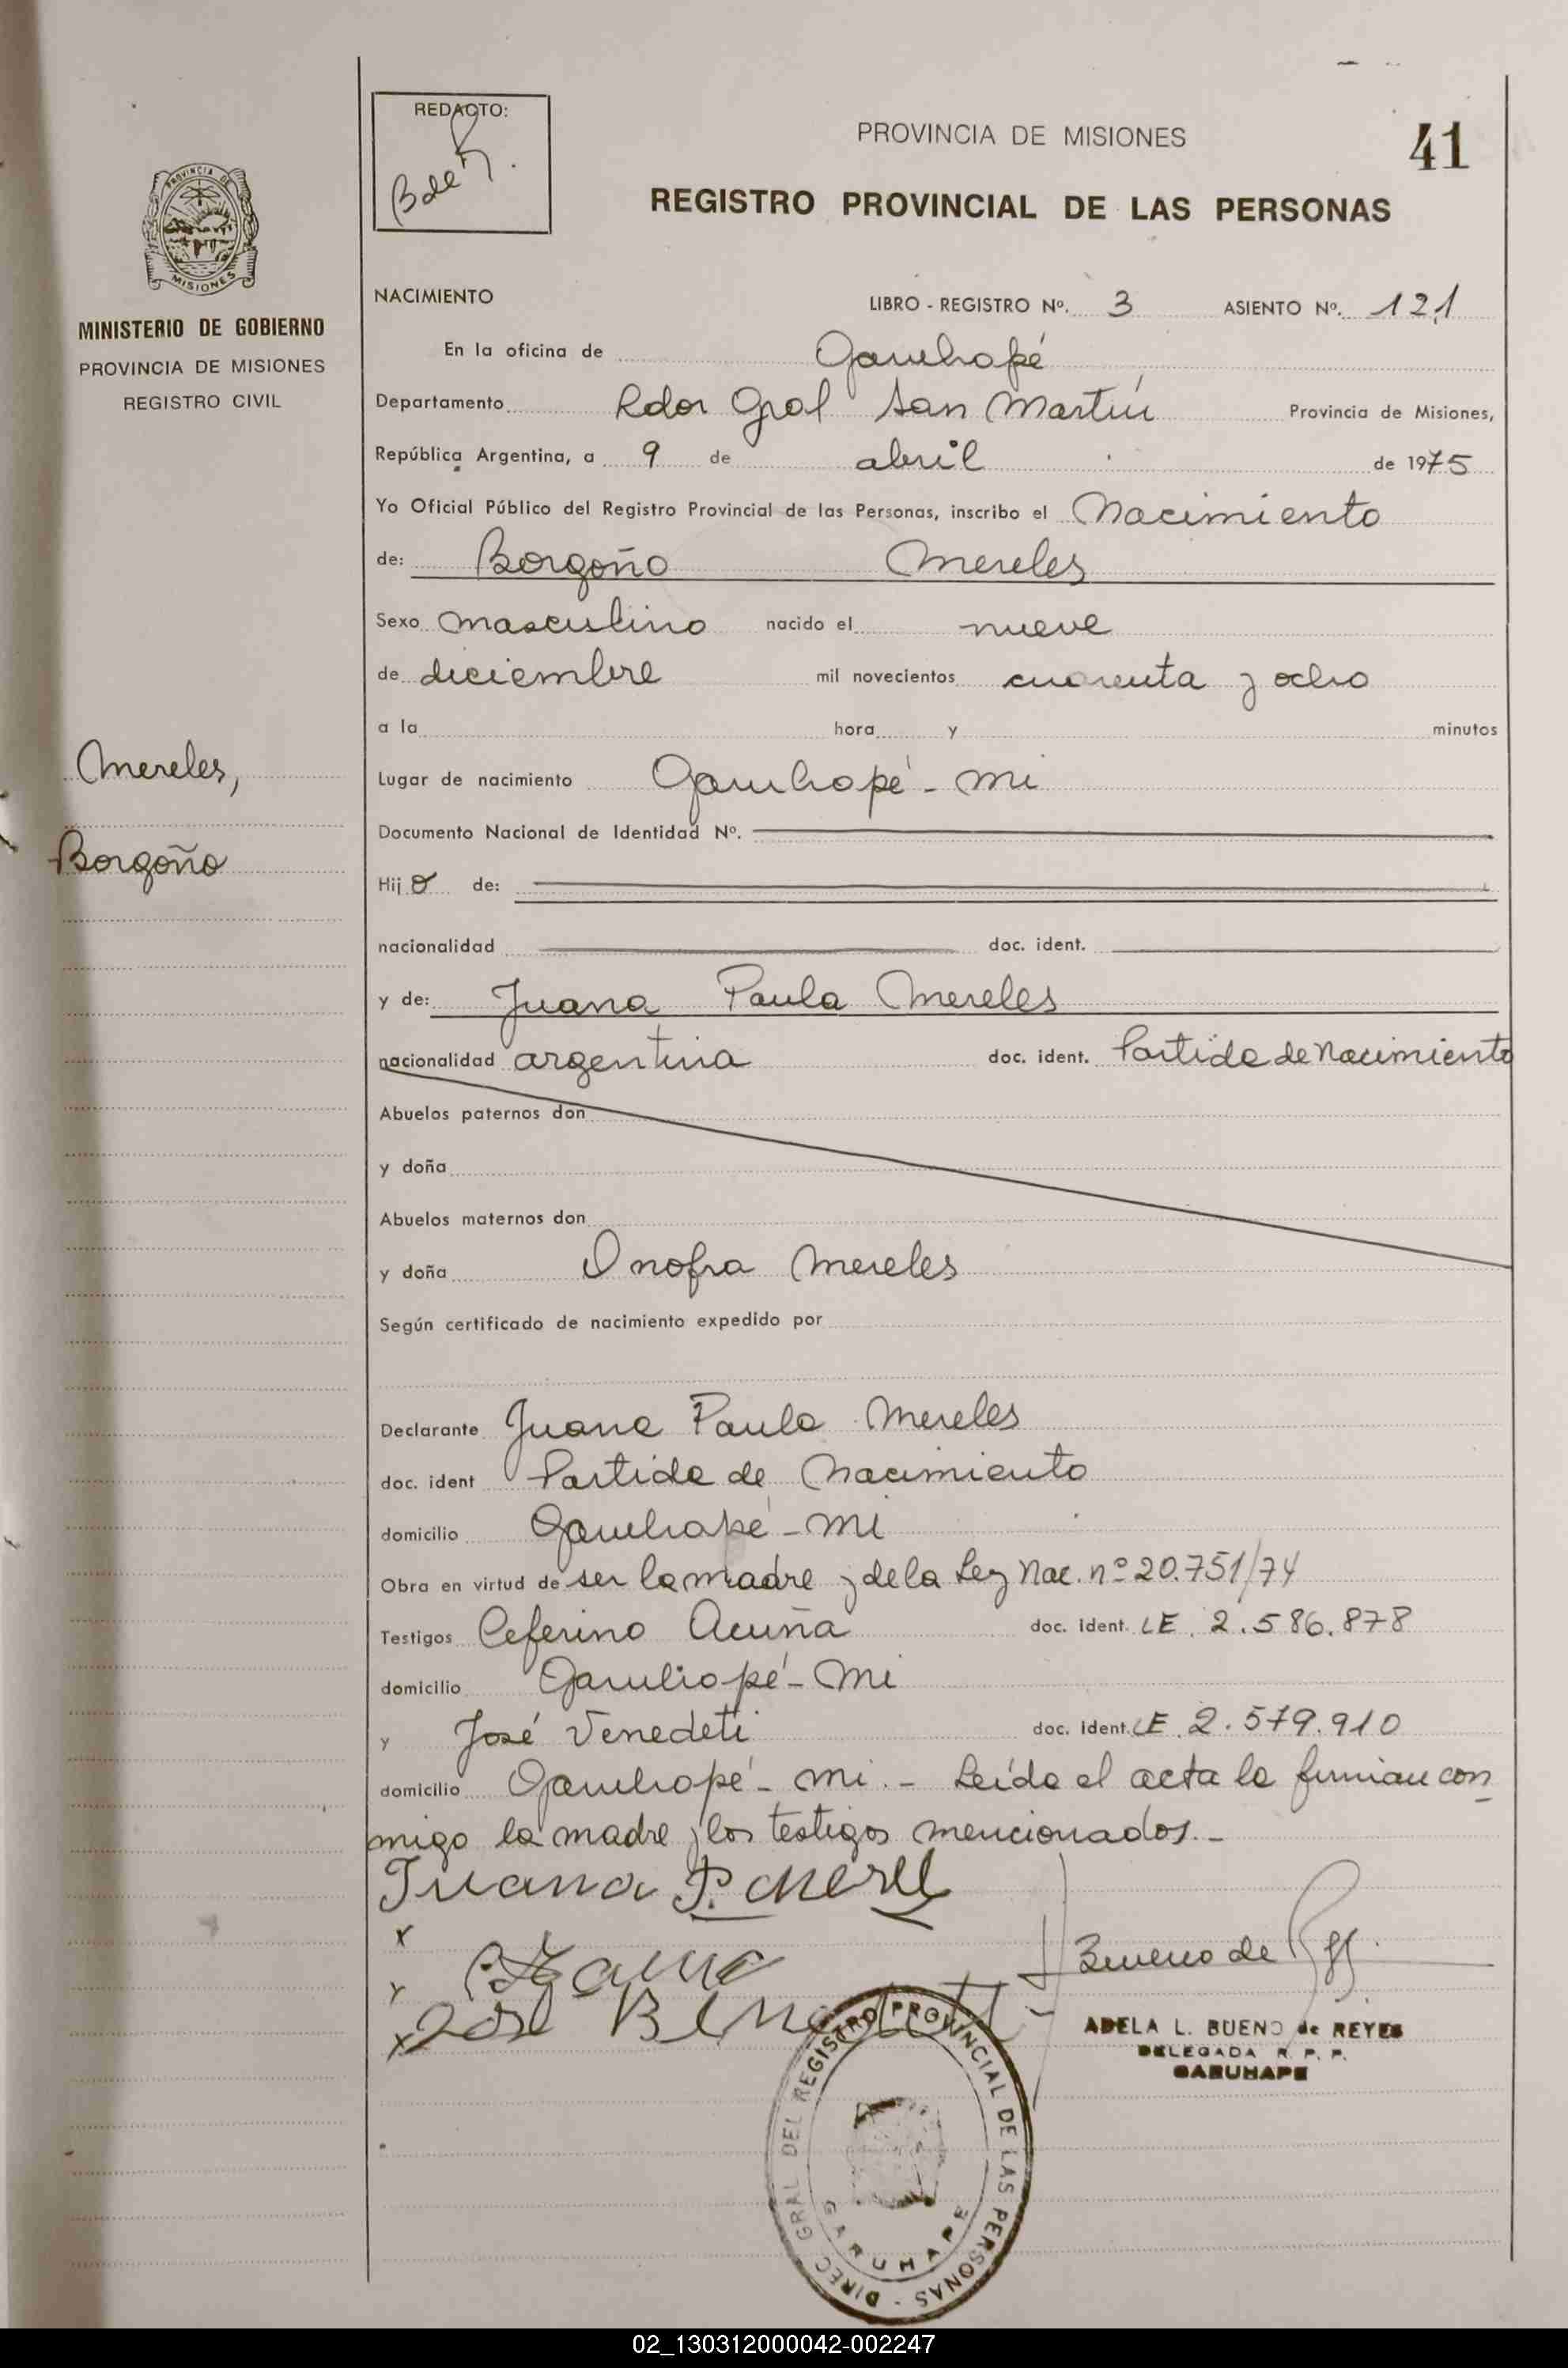 REDACTO:
B de R.
PROVINCIA DE MISIONES
41
REGISTRO PROVINCIAL DE LAS PERSONAS
PROVINCIA DE
MISIONES
MINISTERIO DE GOBIERNO
PROVINCIA DE MISIONES
REGISTRO CIVIL
Mereles,
Borgoño
NACIMIENTO LIBRO - REGISTRO Nº. 3 ASIENTO Nº. 121
En la oficina de Garuhapé
Departamento Ldor Gral San Martín Provincia de Misiones,
República Argentina, a 9 de abril de 1975
Yo Oficial Público del Registro Provincial de las Personas, inscribo el Nacimiento
de: Borgoño Mereles
Sexo masculino nacido el nueve
de diciembre mil novecientos cuarenta y ocho
a la hora y minutos
Lugar de nacimiento Garuhapé - Mi
Documento Nacional de Identidad Nº.
Hijo de:
nacionalidad doc. ident.
y de: Juana Paula Mereles
nacionalidad argentina doc. ident. Partida de Nacimiento
Abuelos paternos don
y doña
Abuelos maternos don
y doña Onofra Mereles
Según certificado de nacimiento expedido por
Declarante Juana Paula Mereles
doc. ident Partida de Nacimiento
domicilio Garuhapé - Mi
Obra en virtud de ser la madre y de la Ley Nac. nº 20.751/74
Testigos Ceferino Acuña doc. ident. LE. 2.586.878
domicilio Garuhapé - Mi
y José Venedeti doc. ident. LE. 2.579.910
domicilio Garuhapé - Mi. - Leída el acta la firman con
migo la madre y los testigos mencionados. -
Juana P. Merel
x
x
x José
Bueno de
ADELA L. BUENO de REYES
DELEGADA R. P. P.
GARUHAPE
DIREC GRAL DEL REGISTRO PROVINCIAL DE LAS PERSONAS -
GARUHAPE
02_130312000042-002247